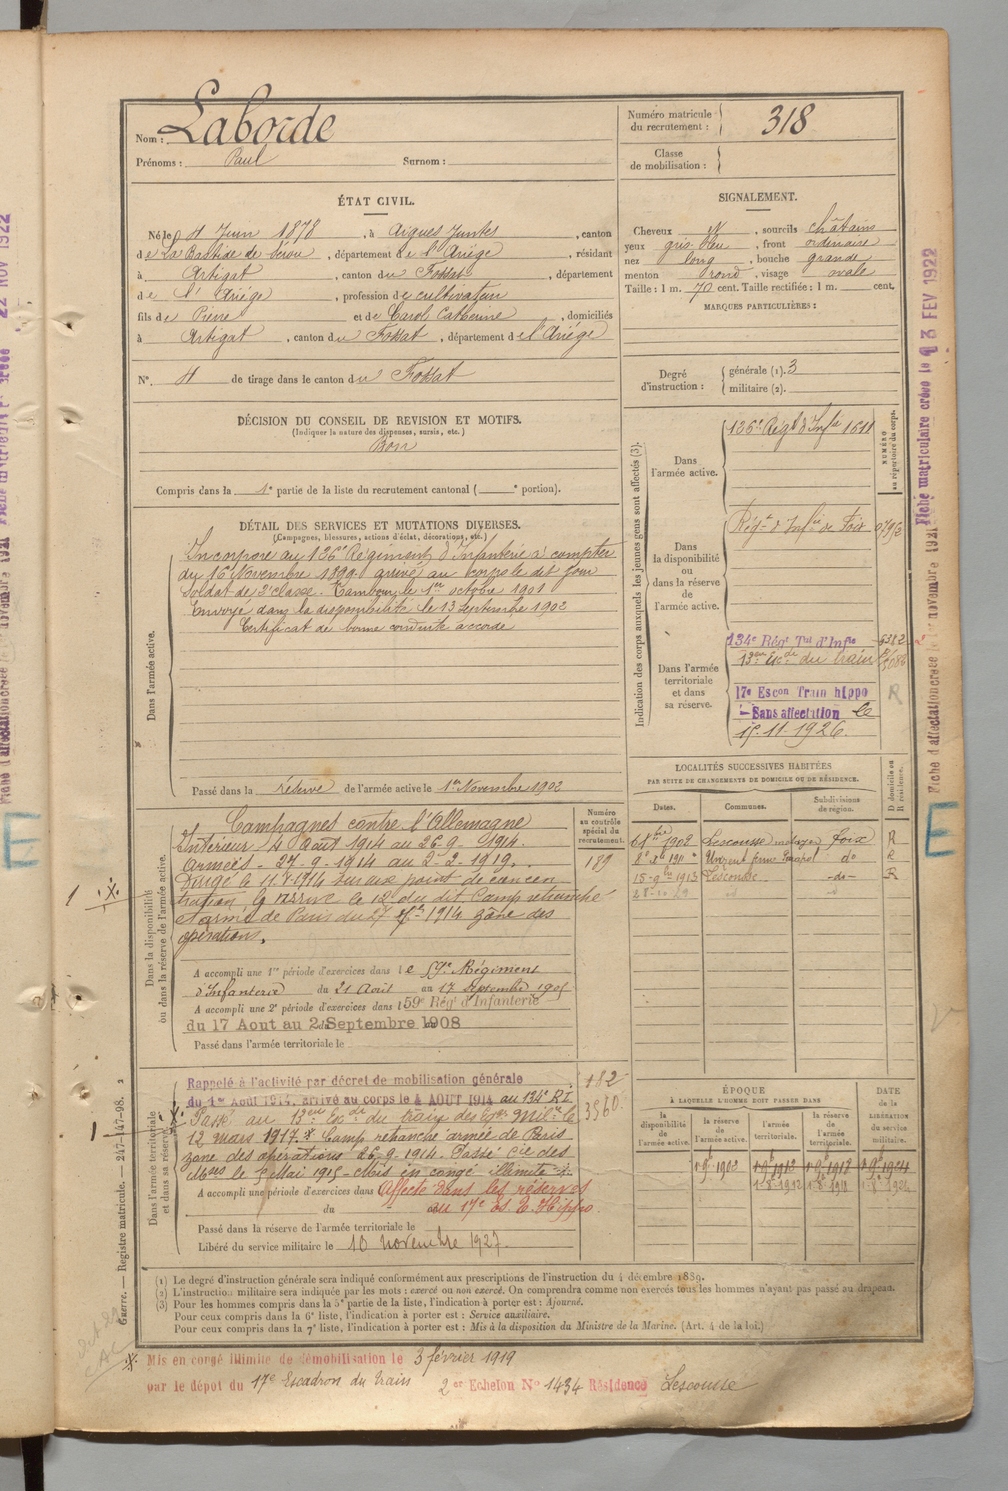 Nom : Laborde
Prénoms : Paul Surnom :
Numéro matricule du recrutement : 318
Classe de mobilisation :
ÉTAT CIVIL.
Né le 4 Juin 1878, à Aigues Juntes, canton
de La Bastide de Sérou, département de l'Ariège, résidant
à Artigat, canton du Fossat, département
de l'Ariège, profession de cultivateur
fils de Pierre et de Carol Catherine, domiciliés
à Artigat, canton du Fossat, département de l'Ariège
N°. 4 de tirage dans le canton du Fossat
SIGNALEMENT.
Cheveux N, sourcils châtains
yeux gris bleu, front ordinaire
nez long, bouche grande
menton rond, visage ovale
Taille : 1 m. 70 cent. Taille rectifiée : 1 m. cent.
MARQUES PARTICULIÈRES :
Degré d'instruction : générale (1). 3
militaire (2).
DÉCISION DU CONSEIL DE REVISION ET MOTIFS.
(Indiquer la nature des dispenses, sursis, etc.)
Bon
Compris dans la 1e partie de la liste du recrutement cantonal ( e portion).
DÉTAIL DES SERVICES ET MUTATIONS DIVERSES.
(Campagnes, blessures, actions d'éclat, décorations, etc.)
Dans l'armée active.
Incorporé au 126e Régiment d'Infanterie à compter
du 16 Novembre 1899 arrivé au corps le dit jour
Soldat de 2e classe. Tambour le 1er octobre 1901
Envoyé dans la disponibilité le 13 Septembre 1902
Certificat de bonne conduite accordé
Passé dans la réserve de l'armée active le 1er Novembre 1902
Indication des corps auxquels les jeunes gens sont affectés (3).
NUMÉRO au répertoire du corps.
Dans l'armée active.
126e Régt d'Infie 1611
Dans la disponibilité ou dans la réserve de l'armée active.
Régt d'Infie de Foix
Dans l'armée territoriale et dans sa réserve.
134e Régt Tal d'Infie 6382
19e Esc. du train
17e Escon Train hippo R
Sans affectation le
15.11.1926.
LOCALITÉS SUCCESSIVES HABITÉES
PAR SUITE DE CHANGEMENTS DE DOMICILE OU DE RÉSIDENCE.
Dates. Communes. Subdivisions de région. D domicile ou R résidence.
1908 Lescousse métayer foix R
1911 do R
15-9-1913 Lescousse -do- R
Dans la disponibilité ou dans la réserve de l'armée active.
Numéro au contrôle spécial du recrutement.
189
Campagnes contre l'Allemagne
Intérieur 4 août 1914 au 26-9-1914.
Armées - 27-9-1914 au 2-2-1919.
Dirigé le 11.8.1914 sur point de concen
tration le 12 du dit Camp retranché
et armée de Paris du 27 7bre 1914 zone des
opérations.
A accompli une 1re période d'exercices dans le 59e Régiment
d'Infanterie du 21 Août au 17 Septembre 1905
A accompli une 2e période d'exercices dans l 59e Régt d'Infanterie
du 17 Aout au 2 Septembre 1908
Passé dans l'armée territoriale le
Dans l'armée territoriale et dans sa réserve.
Rappelé à l'activité par décret de mobilisation générale
du 1er Août 1914, arrivé au corps le 4 AOUT 1914 au 134e R.I.
182
3560
Passé au 19e Esc. du train des Eqes Milres le
12 mars 1917. Camp retranché armée de Paris
zone des opérations 26-9-1914. Passé Cie des
le 5 Mai 1915 - Mis en congé illimité
A accompli une période d'exercices dans Affecté dans les réserves
du au 17e Es. T. Hippo.
Passé dans la réserve de l'armée territoriale le
Libéré du service militaire le 10 novembre 1927.
ÉPOQUE
À LAQUELLE L'HOMME DOIT PASSER DANS
la disponibilité de l'armée active. la réserve de l'armée active. l'armée territoriale. la réserve de l'armée territoriale.
DATE de la LIBÉRATION du service militaire.
1-9bre 1902 1-9bre 1912 1-9bre 1918 1-9bre 1924
1-8-1912 1-8-1918 1-8-1924
(1) Le degré d'instruction générale sera indiqué conformément aux prescriptions de l'instruction du 4 décembre 1889.
(2) L'instruction militaire sera indiquée par les mots : exercé ou non exercé. On comprendra comme non exercés tous les hommes n'ayant pas passé au drapeau.
(3) Pour les hommes compris dans la 5e partie de la liste, l'indication à porter est : Ajourné.
Pour ceux compris dans la 6e liste, l'indication à porter est : Service auxiliaire.
Pour ceux compris dans la 7e liste, l'indication à porter est : Mis à la disposition du Ministre de la Marine. (Art. 4 de la loi.)
Guerre. — Registre matricule. — 247-147-98.
Mis en congé illimité de démobilisation le 3 février 1919
par le dépot du 17e Escadron du Train 2er Echelon N° 1434 Résidence Lescousse
Fiche matriculaire créée le 3 FEV 1922
22 NOV 1922
E
E